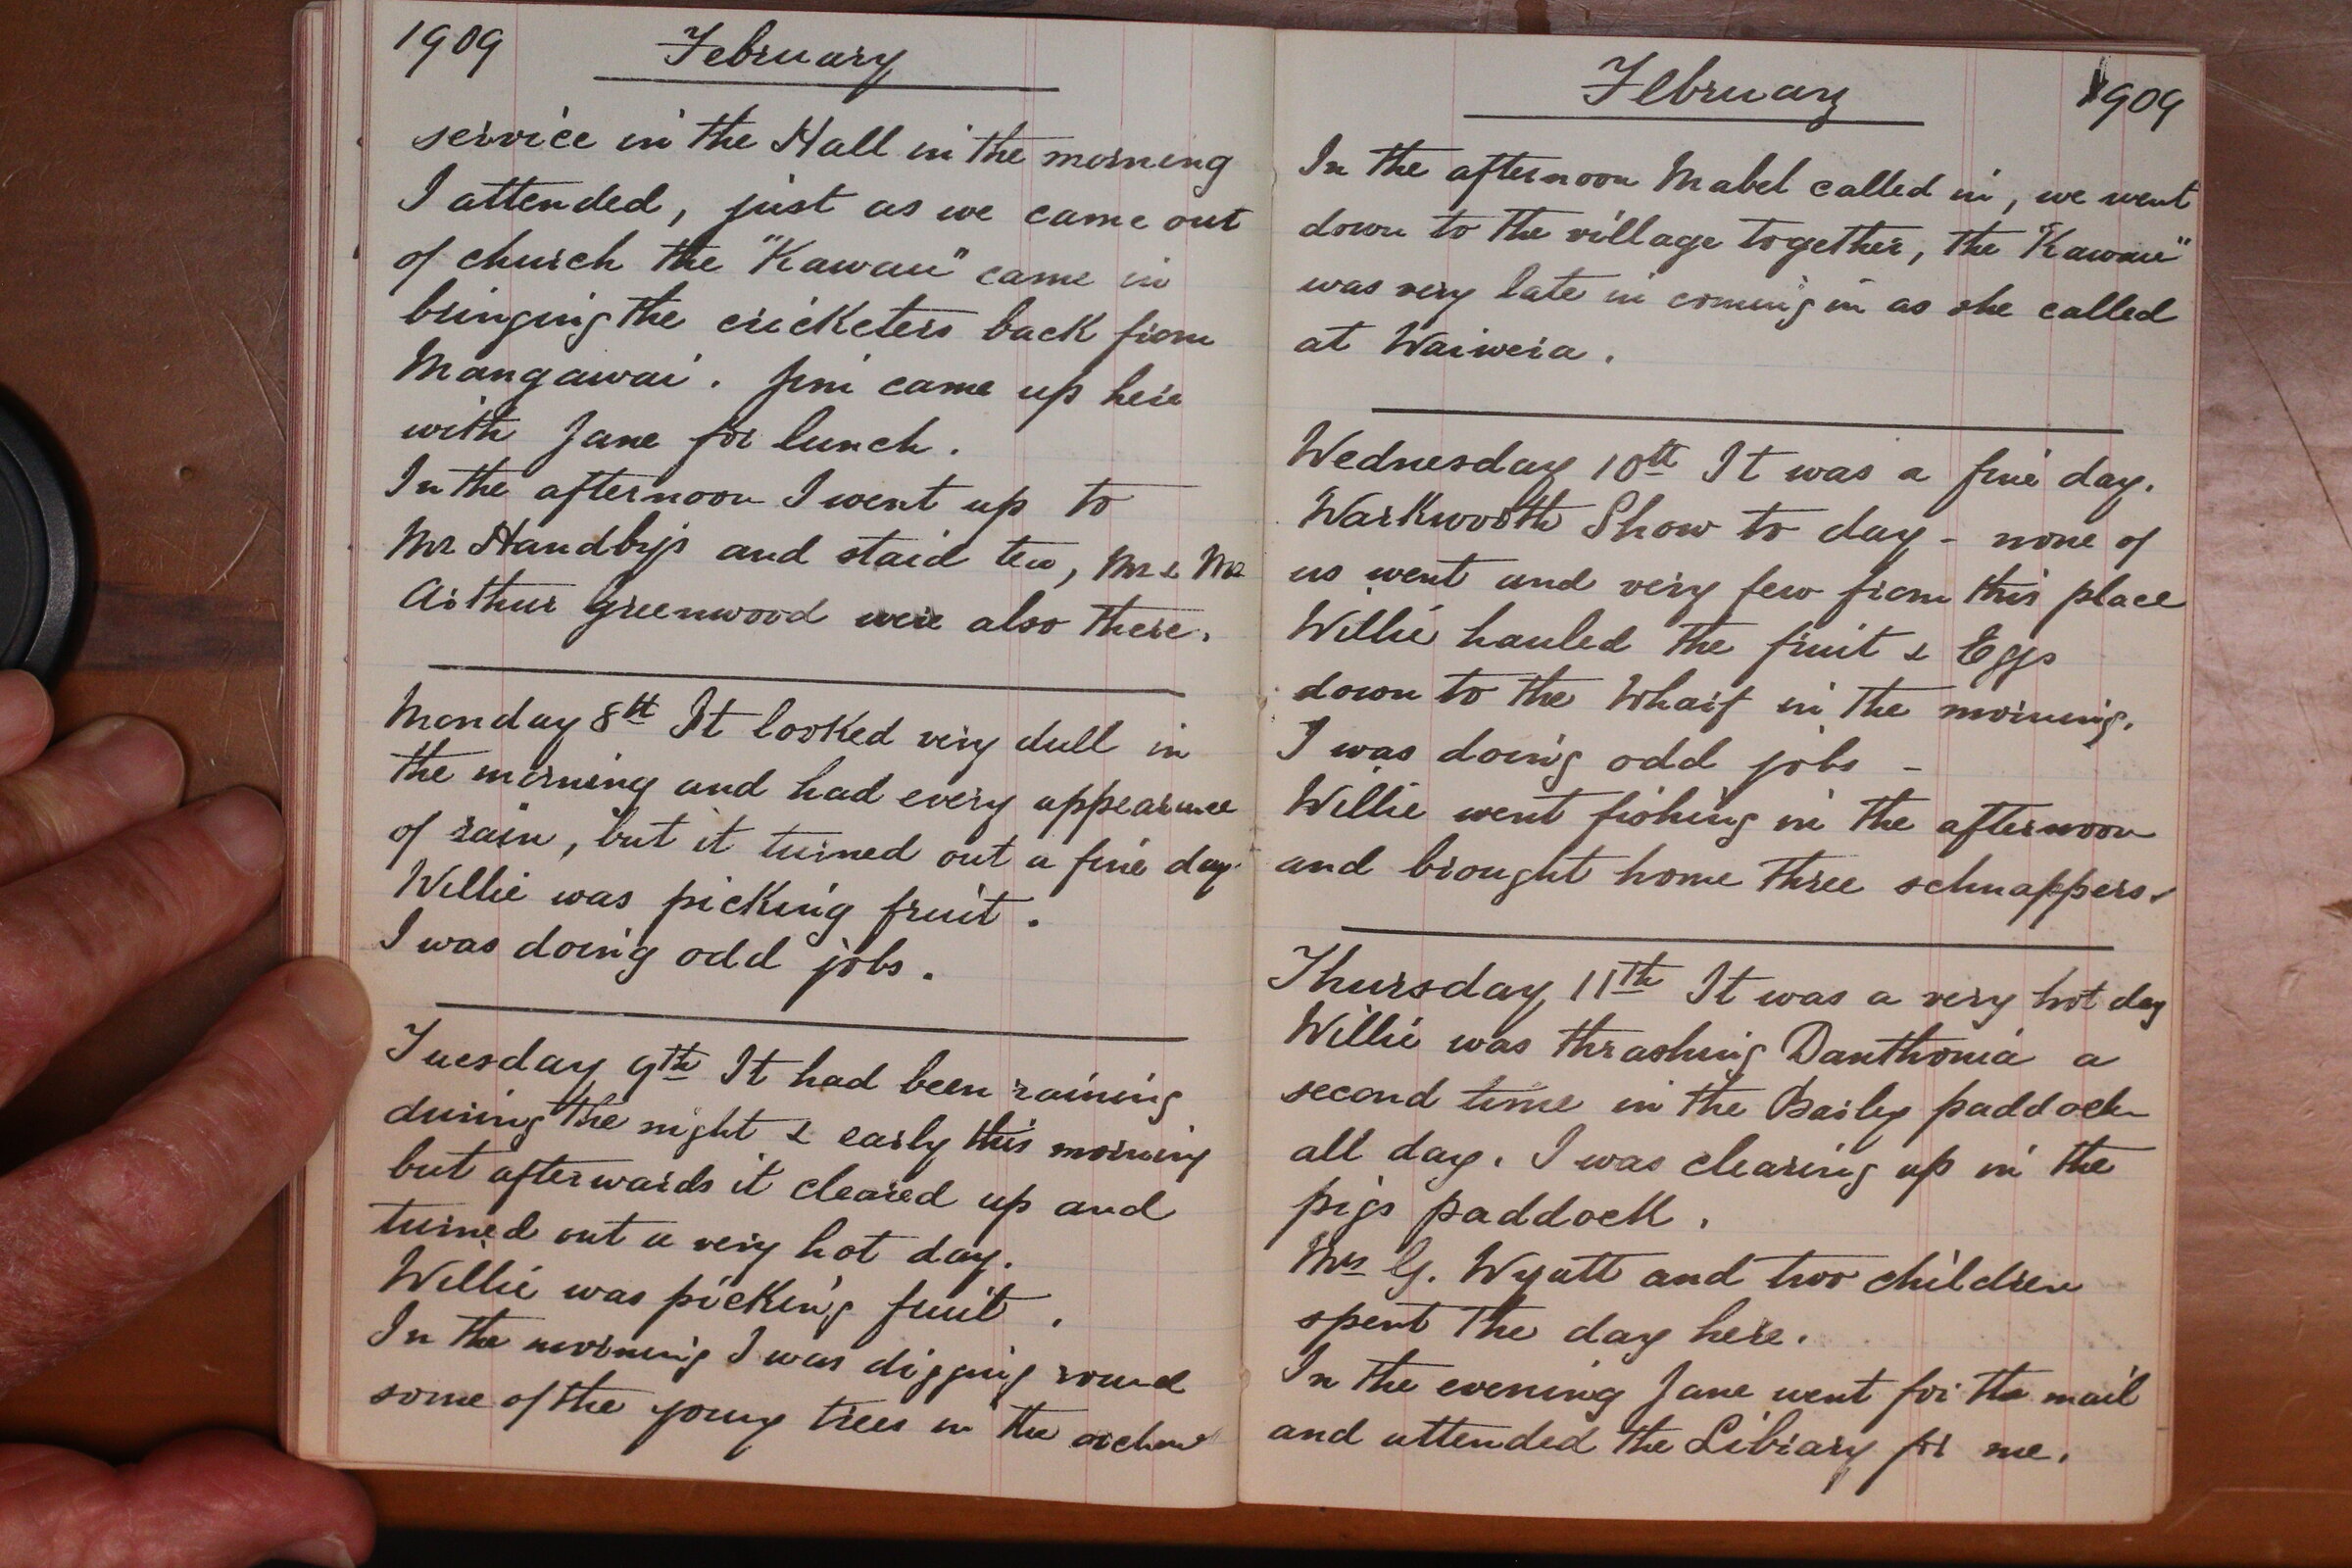 1909 February
service in the Hall in the morning
I attended, just as we came out
of church the "Kawau" came in
bringing the cricketers back from
Mangawai. Jim came up here
with Jane for lunch.
In the afternoon I went up to
Mr Handbys and staid tea, Mr & Mrs
Arthur Greenwood were also there.
Monday 8th It looked very dull in
the morning and had every appearance
of rain, but it turned out a fine day.
Willie was picking fruit.
I was doing odd jobs.
Tuesday 9th It had been raining
during the night & early this morning
but afterwards it cleared up and
turned out a very hot day.
Willie was picking fruit.
In the morning I was digging round
some of the young trees in the orchard
February 1909
In the afternoon Mabel called in, we went
down to the village together, the "Kawau"
was very late in coming in as she called
at Waiwera.
Wednesday 10th It was a fine day.
Warkworth Show to day - none of
us went and very few from this place
Willie hauled the fruit & Eggs
down to the Wharf in the morning.
I was doing odd jobs -
Willie went fishing in the afternoon
and brought home three schnappers.
Thursday 11th It was a very hot day
Willie was thrashing Danthonia a
second time in the Barley paddock
all day. I was clearing up in the
pigs paddock.
Mrs G. Wyatt and two children
spent the day here.
In the evening Jane went for the mail
and attended the Library for me.